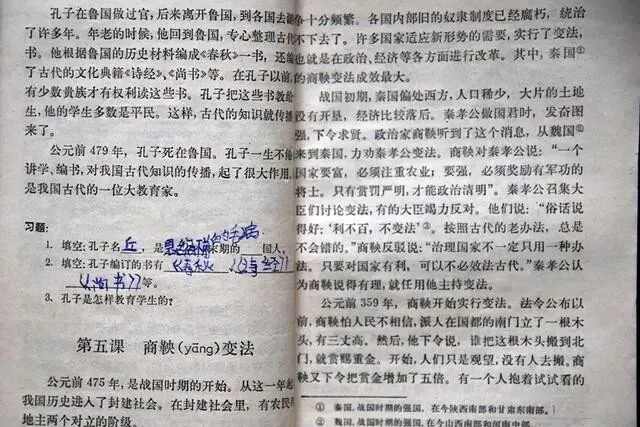 孔子在鲁国做过官，后来离开鲁国，到各国去游
了许多年。年老的时候，他回到鲁国，专心整理古代
书。他根据鲁国的历史材料编成《春秋》一书，还编
了古代的文化典籍《诗经》、《尚书》等。在孔子以前，
有少数贵族才有权利读这些书。孔子把这些书教给
生，他的学生多数是平民。这样，古代的知识就传播
来了。
公元前 479 年，孔子死在鲁国。孔子一生不倦
讲学、编书，对我国古代知识的传播，起了很大作用，
是我国古代的一位大教育家。
习题：
1. 填空：孔子名丘，是 末期的 国人，
2. 填空：孔子编订的书有《春秋》《诗经》
《尚书》等。
3. 孔子是怎样教育学生的？
第五课 商鞅(yāng)变法
公元前 475 年，是战国时期的开始。从这一年起
我国历史进入了封建社会。在封建社会里，有农民
地主两个对立的阶级。
争十分频繁。各国内部旧的奴隶制度已经腐朽，统治
不下去了。许多国家适应新形势的需要，实行了变法，
也就是在政治、经济等各方面进行改革。其中，秦国①
的商鞅变法成效最大。
战国初期，秦国偏处西方，人口稀少，大片的土地
没有开垦，经济比较落后。秦孝公做国君时，发奋图
强，下令求贤。政治家商鞅听到了这个消息，从魏国②
来到秦国，力劝秦孝公变法。商鞅对秦孝公说：“一个
国家要富，必须注重农业；要强，必须奖励有军功的
将士。只有赏罚严明，才能政治清明”。秦孝公召集大
臣们讨论变法，有的大臣竭力反对。他们说：“俗话说
得好：‘利不百，不变法’③。按照古代的老办法，总是
不会错的。”商鞅反驳说：“治理国家不一定只用一种办
法。只要对国家有利，可以不必效法古代。”秦孝公认
为商鞅说得有理，就任用他主持变法。
公元前 359 年，商鞅开始实行变法。法令公布以
前，商鞅怕人民不相信，派人在国都的南门立了一根木
头，有三丈高。然后，他下令说，谁把这根木头搬到北
门，就赏赐重金。开始，人们只是观望，没有人去搬。商
鞅又下令把赏金增加了五倍。有一个人抱着试试看的
① 秦国，战国时期的强国，在今陕西南部和甘肃东南部。
② 魏国，战国时期的强国，在今山西南部和河南中部。